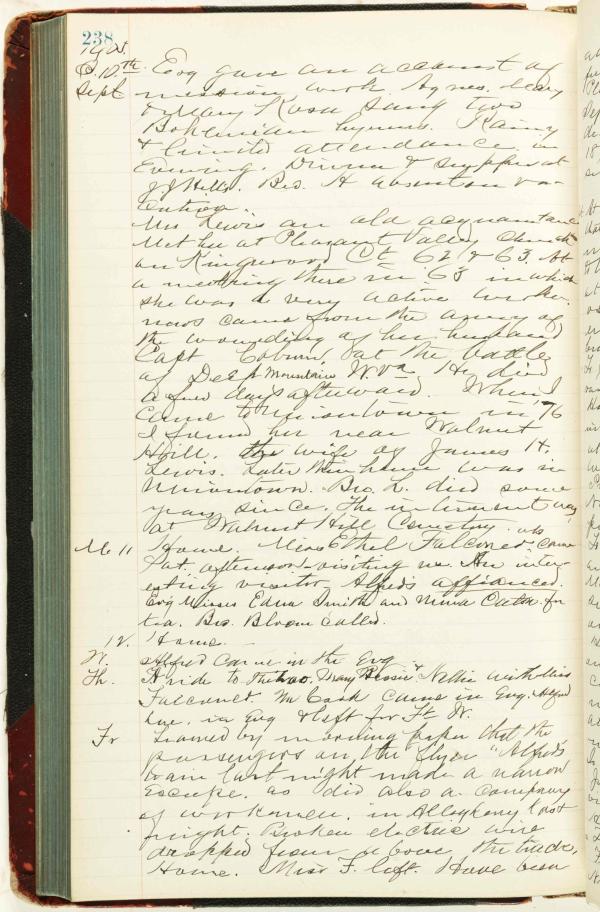 238
1905.
S. 10th Evg gave an account of
Sept mission work. Agnes, Mary
& Mary Rosa sang two
Bohemian hymns. Rainy
& limited attendance in
Evening. Dinner & supper at
J J Hills. Bro. H absent on va-
cation.
Mrs Lewis an old acquaintance
Met her at Pleasant Valley Church
on Kingwood Ct. 62 & 63. At
a meeting there in '63 in which
she was a very active worker.
news came from the army of
the wounding of her husband
Capt Coburn, at the battle
of Deep Mountain W. Va. He died
a few days afterward. When I
came to Uniontown in '76
I found her near Walnut
Hill. the wife of James H.
Lewis. Later their home was in
Uniontown. Bro. L. died some
years since. The interment was
at Walnut Hill Cemetery.
M. 11 Home. Miss Ethel Falconer came
Sat. afternoon visiting us. An inter-
esting visitor, Alfred's affianced.
Evg Misses Edna Smith and Minna for
tea. Bro. Bloom called.
12. Home.
W. Alfred came in the Evg
Th. A ride to the Mary Bessie & Nellie with Miss
Falconer. Mr Cook came in Evg. Alfred
here. in Evg & left for Ft. W.
Fr Learned by morning paper that the
passengers on the flyer "Alfred's
train last night made a narrow
escape. as did also a company
of workmen. in Allegheny last
night. Broken electric wire
dropped from above the tracks,
Home. Miss F. left. Have been